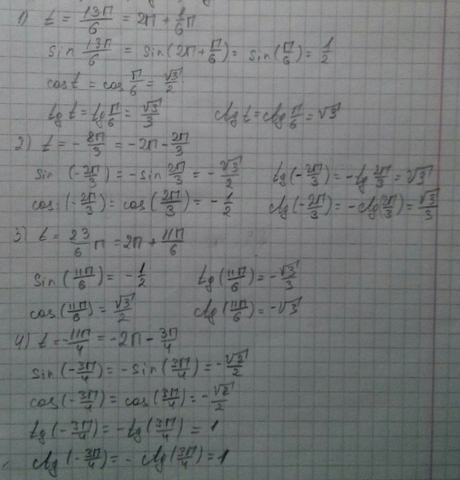 1) t = 13П/6 = 2П + 1/6 П
sin 13П/6 = sin(2П + П/6) = sin(П/6) = 1/2
cos t = cos П/6 = √3/2
tg t = tg П/6 = √3/3 ctg t = ctg П/6 = √3
2) t = - 8П/3 = -2П - 2П/3
sin (-2П/3) = -sin 2П/3 = - √3/2 tg(-2П/3) = -tg 2П/3 = √3
cos (-2П/3) = cos(2П/3) = - 1/2 ctg(-2П/3) = -ctg(2П/3) = √3/3
3) t = 23/6 П = 2П + 11П/6
sin(11П/6) = - 1/2 tg(11П/6) = - √3/3
cos(11П/6) = √3/2 ctg(11П/6) = -√3
4) t = - 11П/4 = -2П - 3П/4
sin(-3П/4) = -sin(3П/4) = - √2/2
cos(-3П/4) = cos(3П/4) = - √2/2
tg(-3П/4) = -tg(3П/4) = 1
ctg(-3П/4) = - ctg(3П/4) = 1